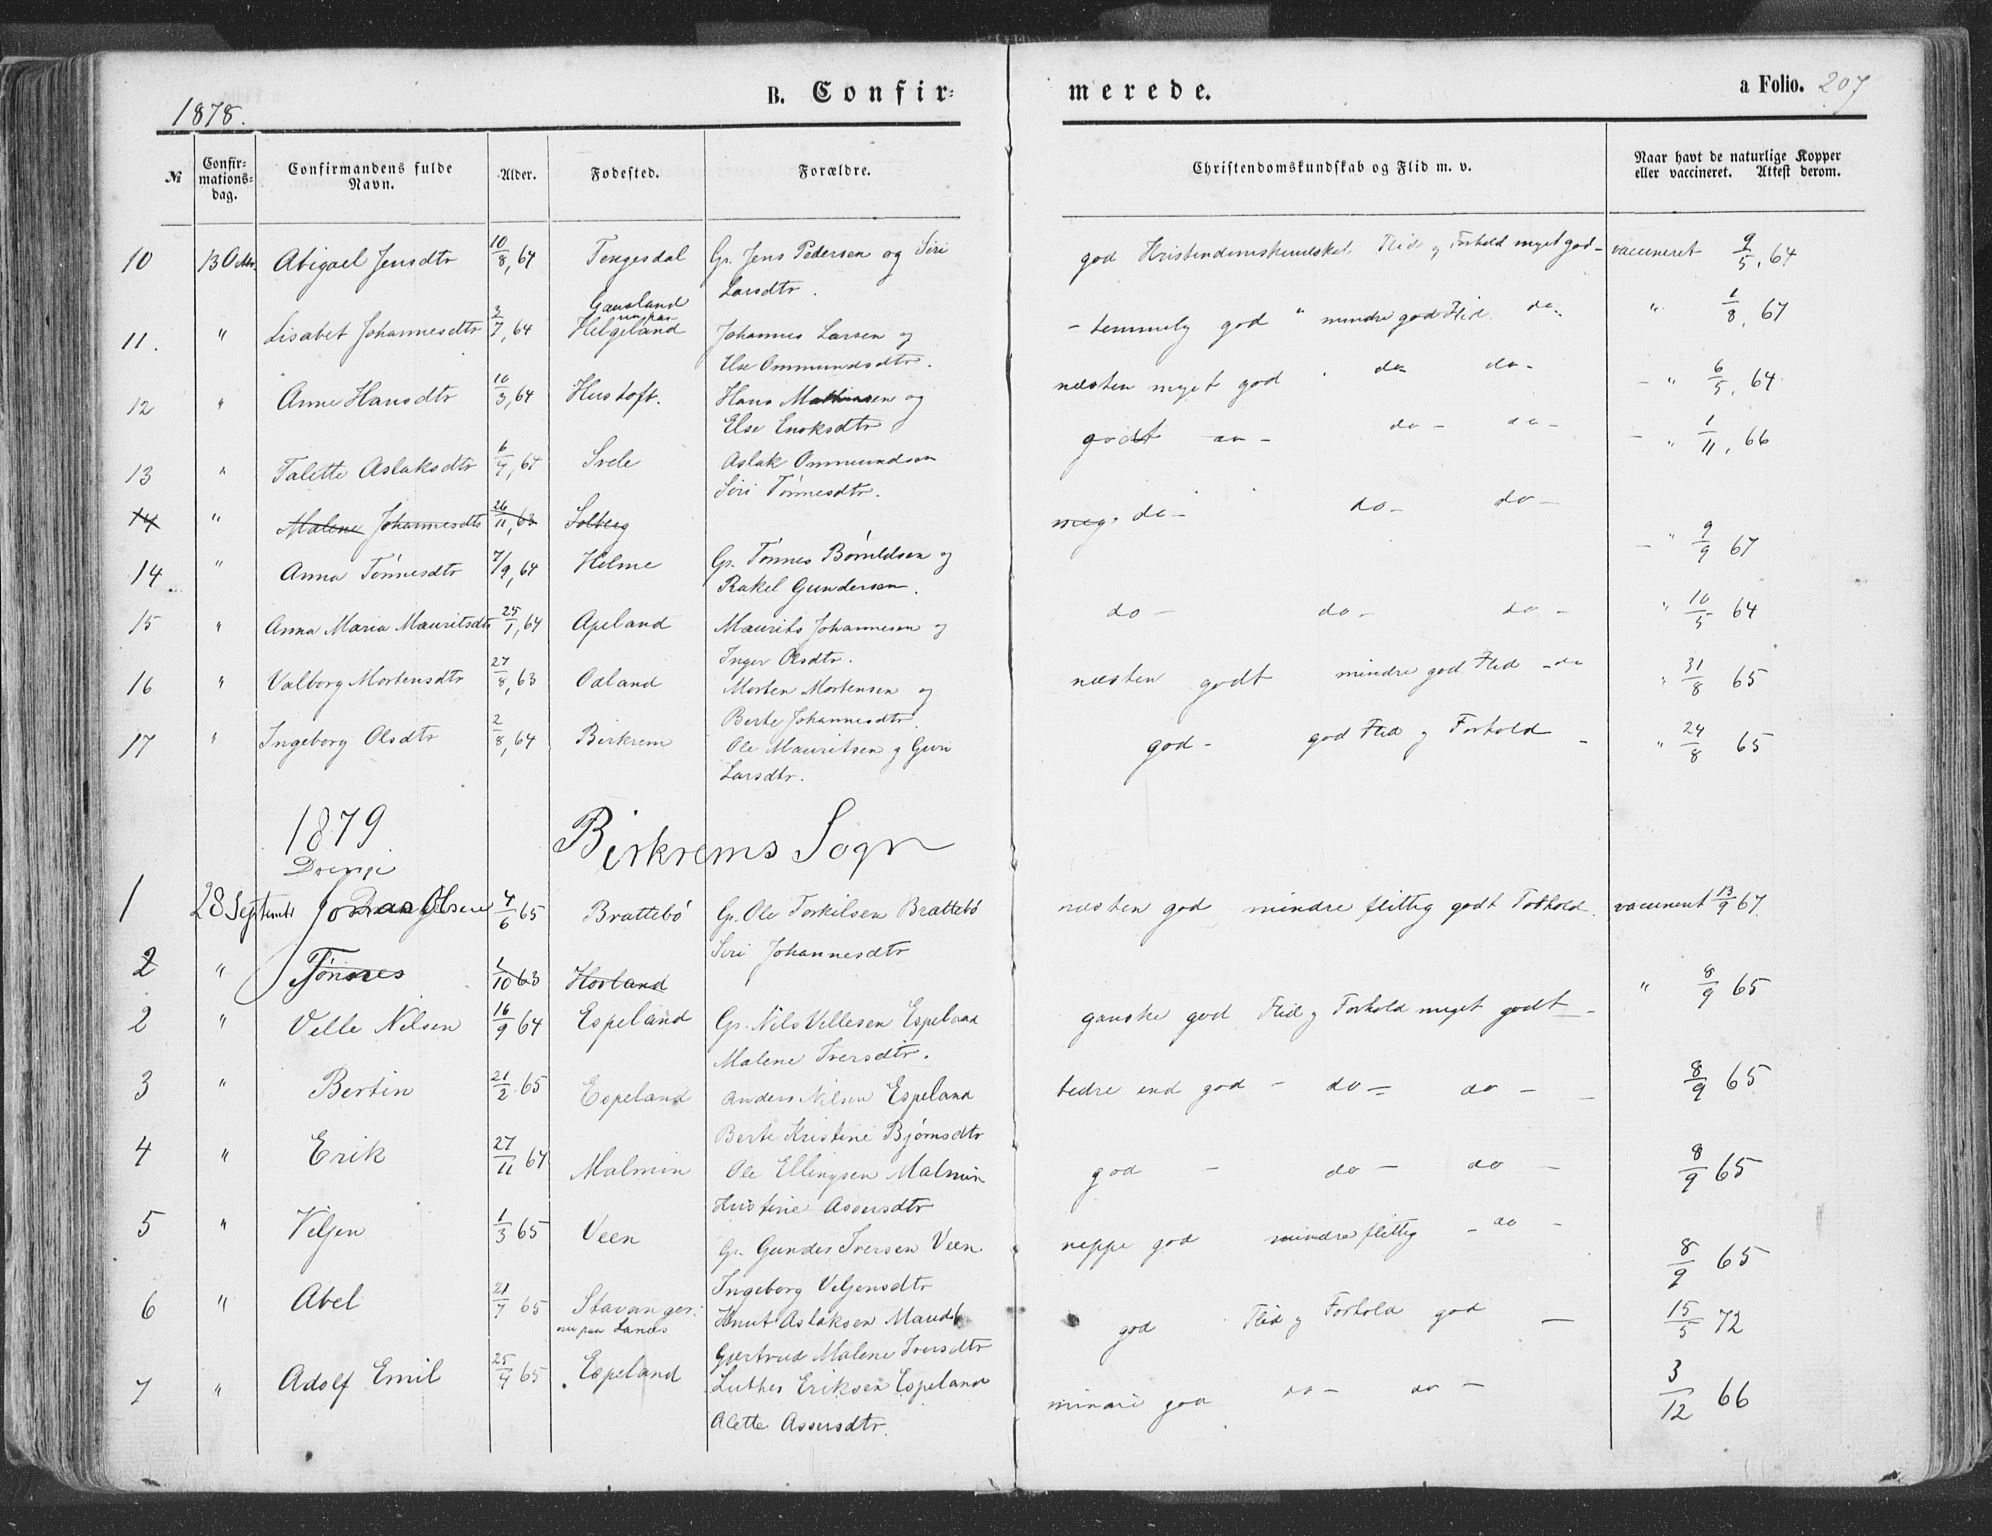 1878.
B. Confir-
merede.
a Folio. 207
№
Confir-
mations-
dag.
Confirmandens fulde
Navn.
Alder.
Fødested.
Forældre.
Christendomskundskab og Flid m. v.
Naar havt de naturlige Kopper
eller vaccineret. Attest derom.
10 13 Octbr. Abigael Jensdtr 10/8, 64 Tengesdal Gr. Jens Pedersen og Siri god Kristendomskundskab Flid og Forhold meget god - vaccineret 9/5, 64
Larsdtr.
Gausland
nu paa
11. " Lisabet Johannesdtr 3/7, 64 Helgeland Johannes Larsen og - temmelig god " mindre god Flid do- " 1/8, 67
Else Ommundsdtr.
12 " Anne Hansdtr 10/3, 64 Hustoft. Hans Mathiasen og næsten meget god " do do- - " 6/5, 64
Else Enoksdtr
13 " Talette Aslaksdtr 6/4, 64 Svele Aslak Ommundsen godt do- do- - " 1/11, 66
Siri Tønnesdtr.
14 " Malene Johannesdtr 26/11, 63 Solberg meg. do- do- do-
14 " Anna Tønnesdtr 7/9, 64 Helme Gr. Tønnes Børuldsen og - " 9/9 67
Rakel Gundersen.
15 " Anna Maria Mauritsdtr 25/1, 64 Apeland Maurits Johannesen og do- do- do- " 10/5 64
Inger Olsdtr.
16 " Valborg Mortensdtr 27/8, 63 Oaland Morten Mortensen og næsten godt mindre god Flid - do " 31/8 65
Berte Johannesdtr
17 " Ingeborg Olsdtr 2/8, 64 Birkrem Ole Mauritsen og Guri god- god Flid og Forhold - " 24/8 65
Larsdtr.
1879 Birkrems Sogn
Drenge
1 28 September Jonas Olsen 4/6 65 Brattebø Gr. Ole Torkilsen Brattebø næsten god mindre flittig godt Forhold. vaccineret 13/9 67.
Siri Johannesdtr
2 " Tønnes 1/10 63 Hovland
2 " Velle Nilsen 16/9 64 Espeland Gr. Nils Vellesen Espeland ganske god Flid og Forhold meget godt - " 8/9 65
Malene Iversdtr.
3 " Bertin 21/2 65 Espeland Anders Nilsen Espeland bedre end god - do- do - - 8/9 65
Berte Kristine Bjørnsdtr
4 " Erik 27/11 64 Malmin Ole Ellingsen Malmin god - do - do - 8/9 65
Kristine Assersdtr
5 " Veljen 1/3 65 Veen Gr. Gunder Iversen Veen neppe god mindre flittig - do - 8/9 65
Ingeborg Veljensdtr
6 " Abel 21/7 65 Stavanger. Knut Aslaksen Maudal god Flid og Forhold god - 15/5 72
nu paa Lanes
Gjertrud Malene Iversdtr
7 " Adolf Emil 25/4 65 Espeland Luther Eriksen Espeland mindre god do - do - 3/12 66
Alette Assersdtr.